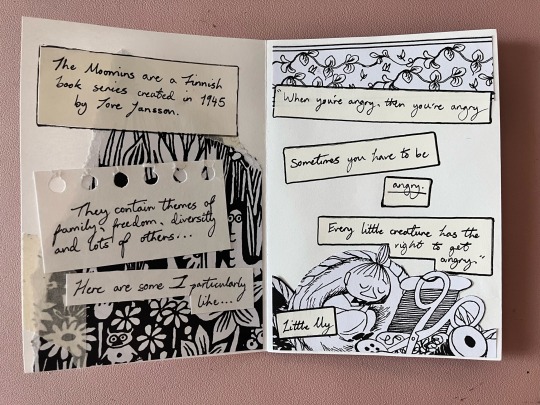 The Moomins are a Finnish
book series created in 1945
by Tove Jansson.
They contain themes of
family, freedom, diversity
and lots of others...
Here are some I particularly
like...
"When you're angry, then you're angry
Sometimes you have to be
angry.
Every little creature has the
right to get
angry."
Little My